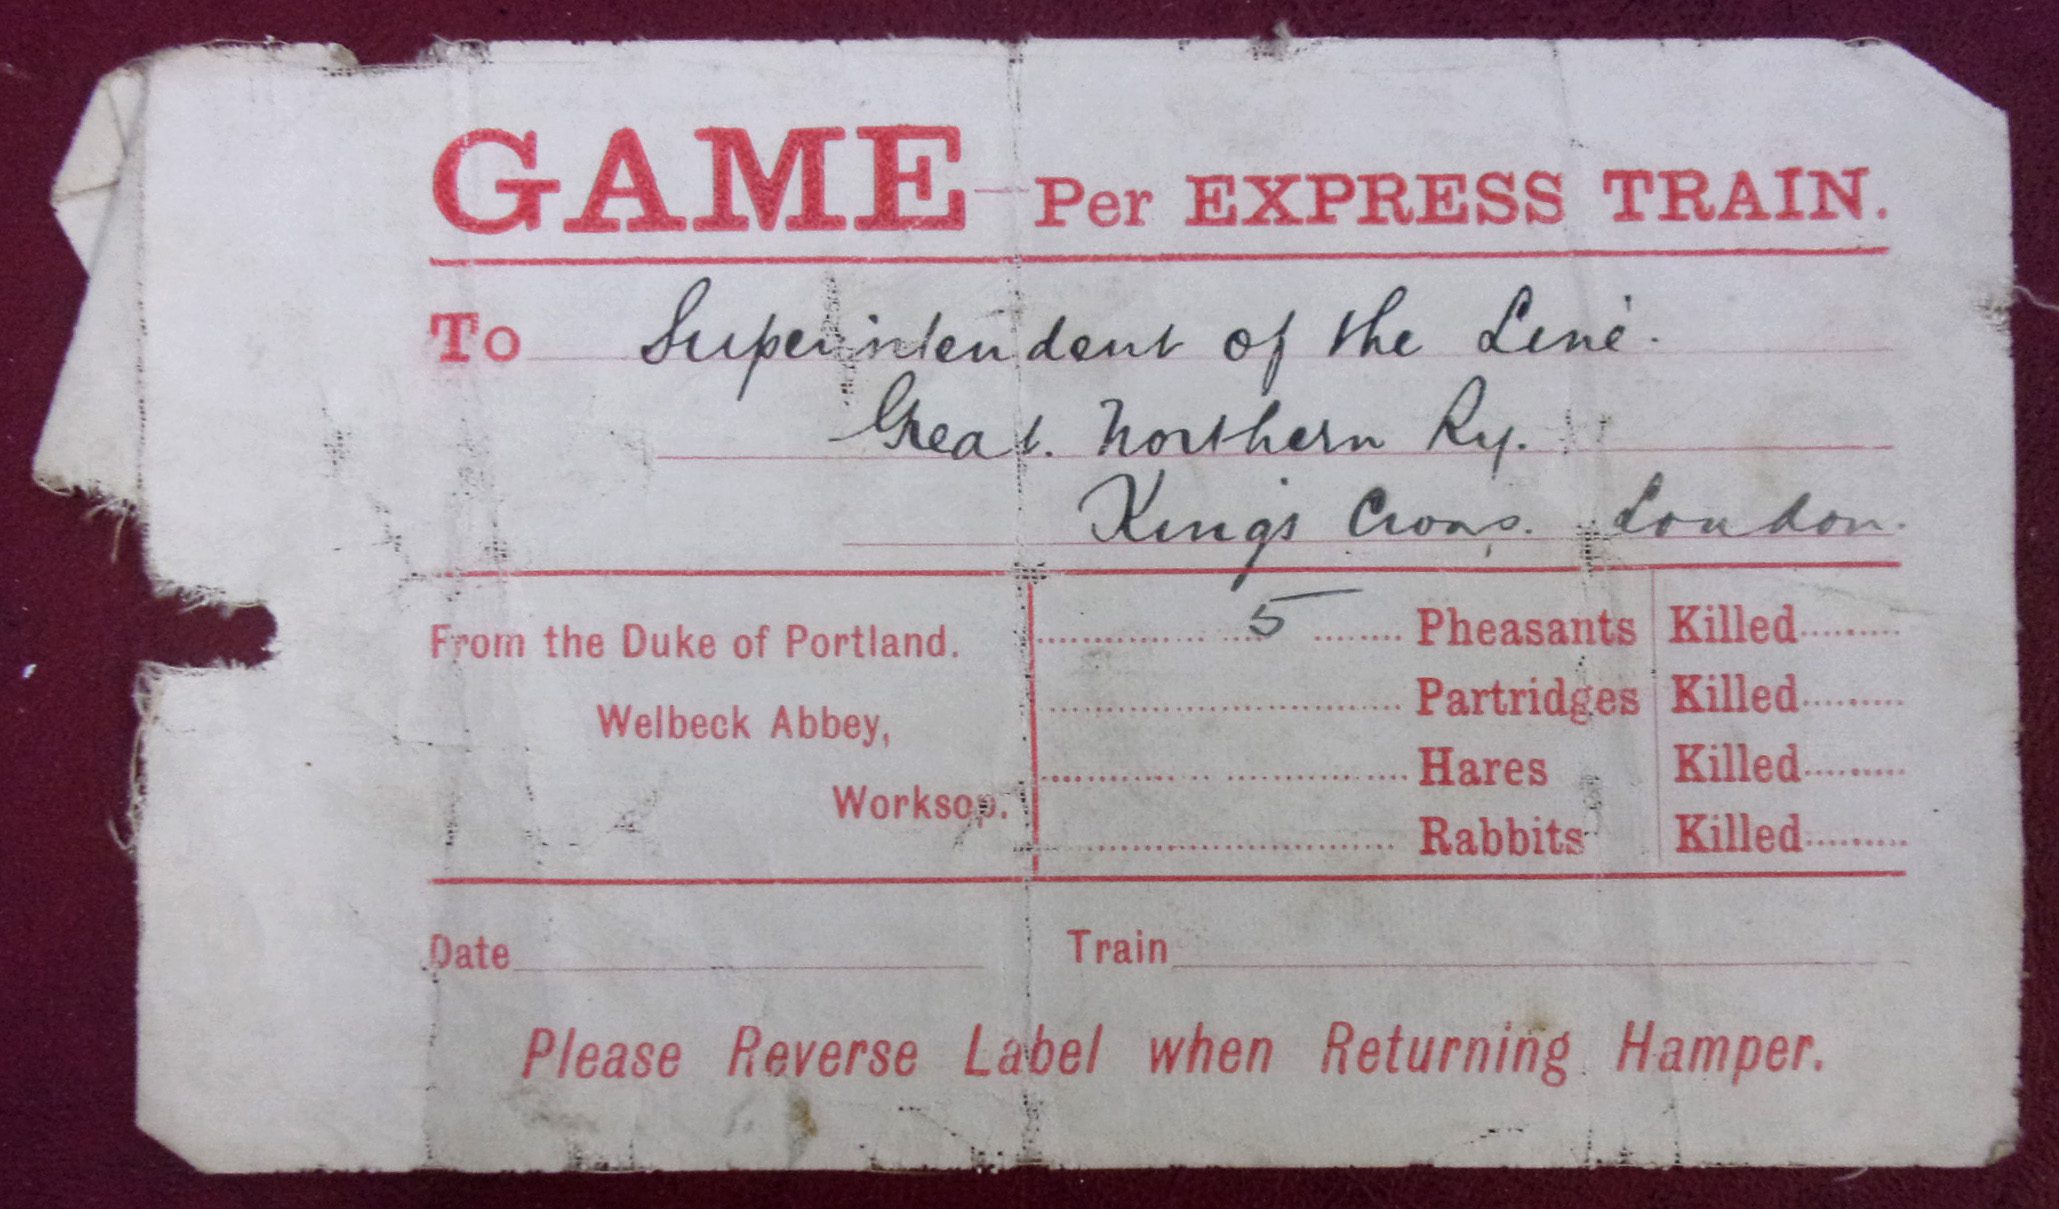 GAME Per EXPRESS TRAIN.
To Superintendent of the Line.
Great. Northern Ry.
Kings Cross. London.
From the Duke of Portland.
Welbeck Abbey,
Worksop.
5 Pheasants Killed
Partridges Killed
Hares Killed
Rabbits Killed
Date Train
Please Reverse Label when Returning Hamper.